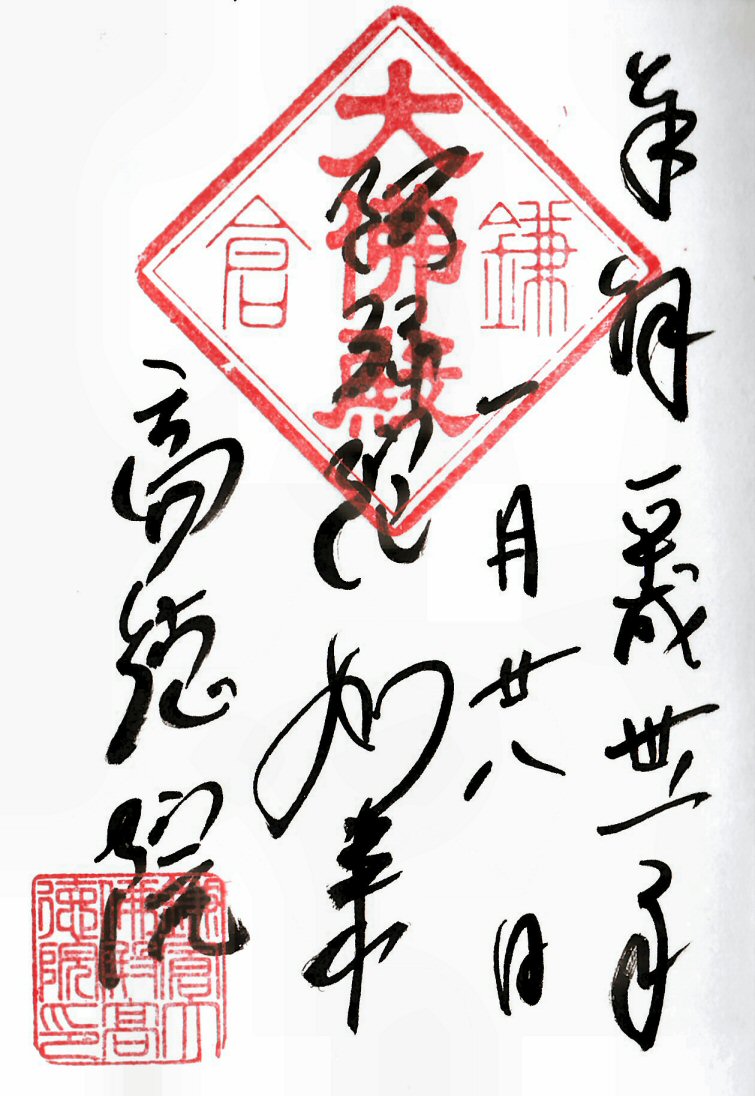 奉拝 平成卅一年
一月廿八日
鎌倉
大佛殿
阿弥陀如来
高徳院
鎌倉大
佛殿高
徳院印